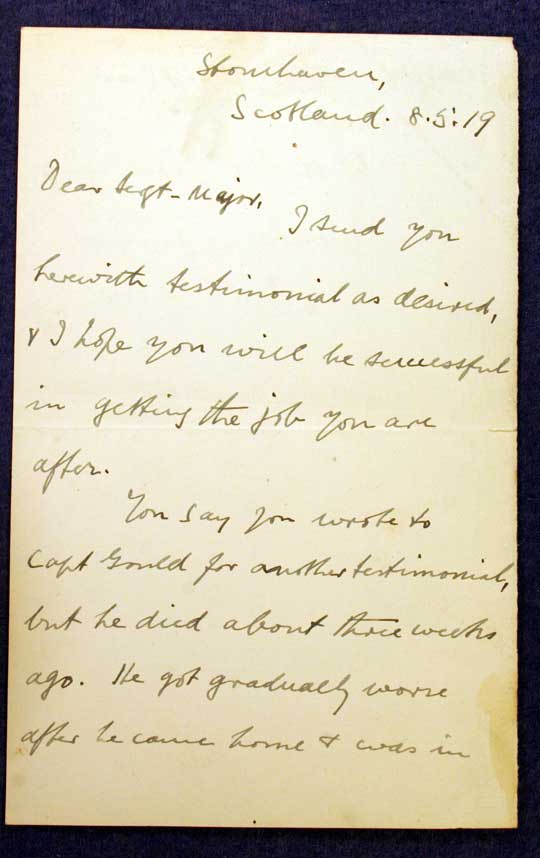 Stonehaven,
Scotland. 8.5.19
Dear Sergt-Major,
I send you
herewith testimonial as desired,
& I hope you will be successful
in getting the job you are
after.
You say you wrote to
Capt Gould for another testimonial,
but he died about three weeks
ago. He got gradually worse
after he came home & was in